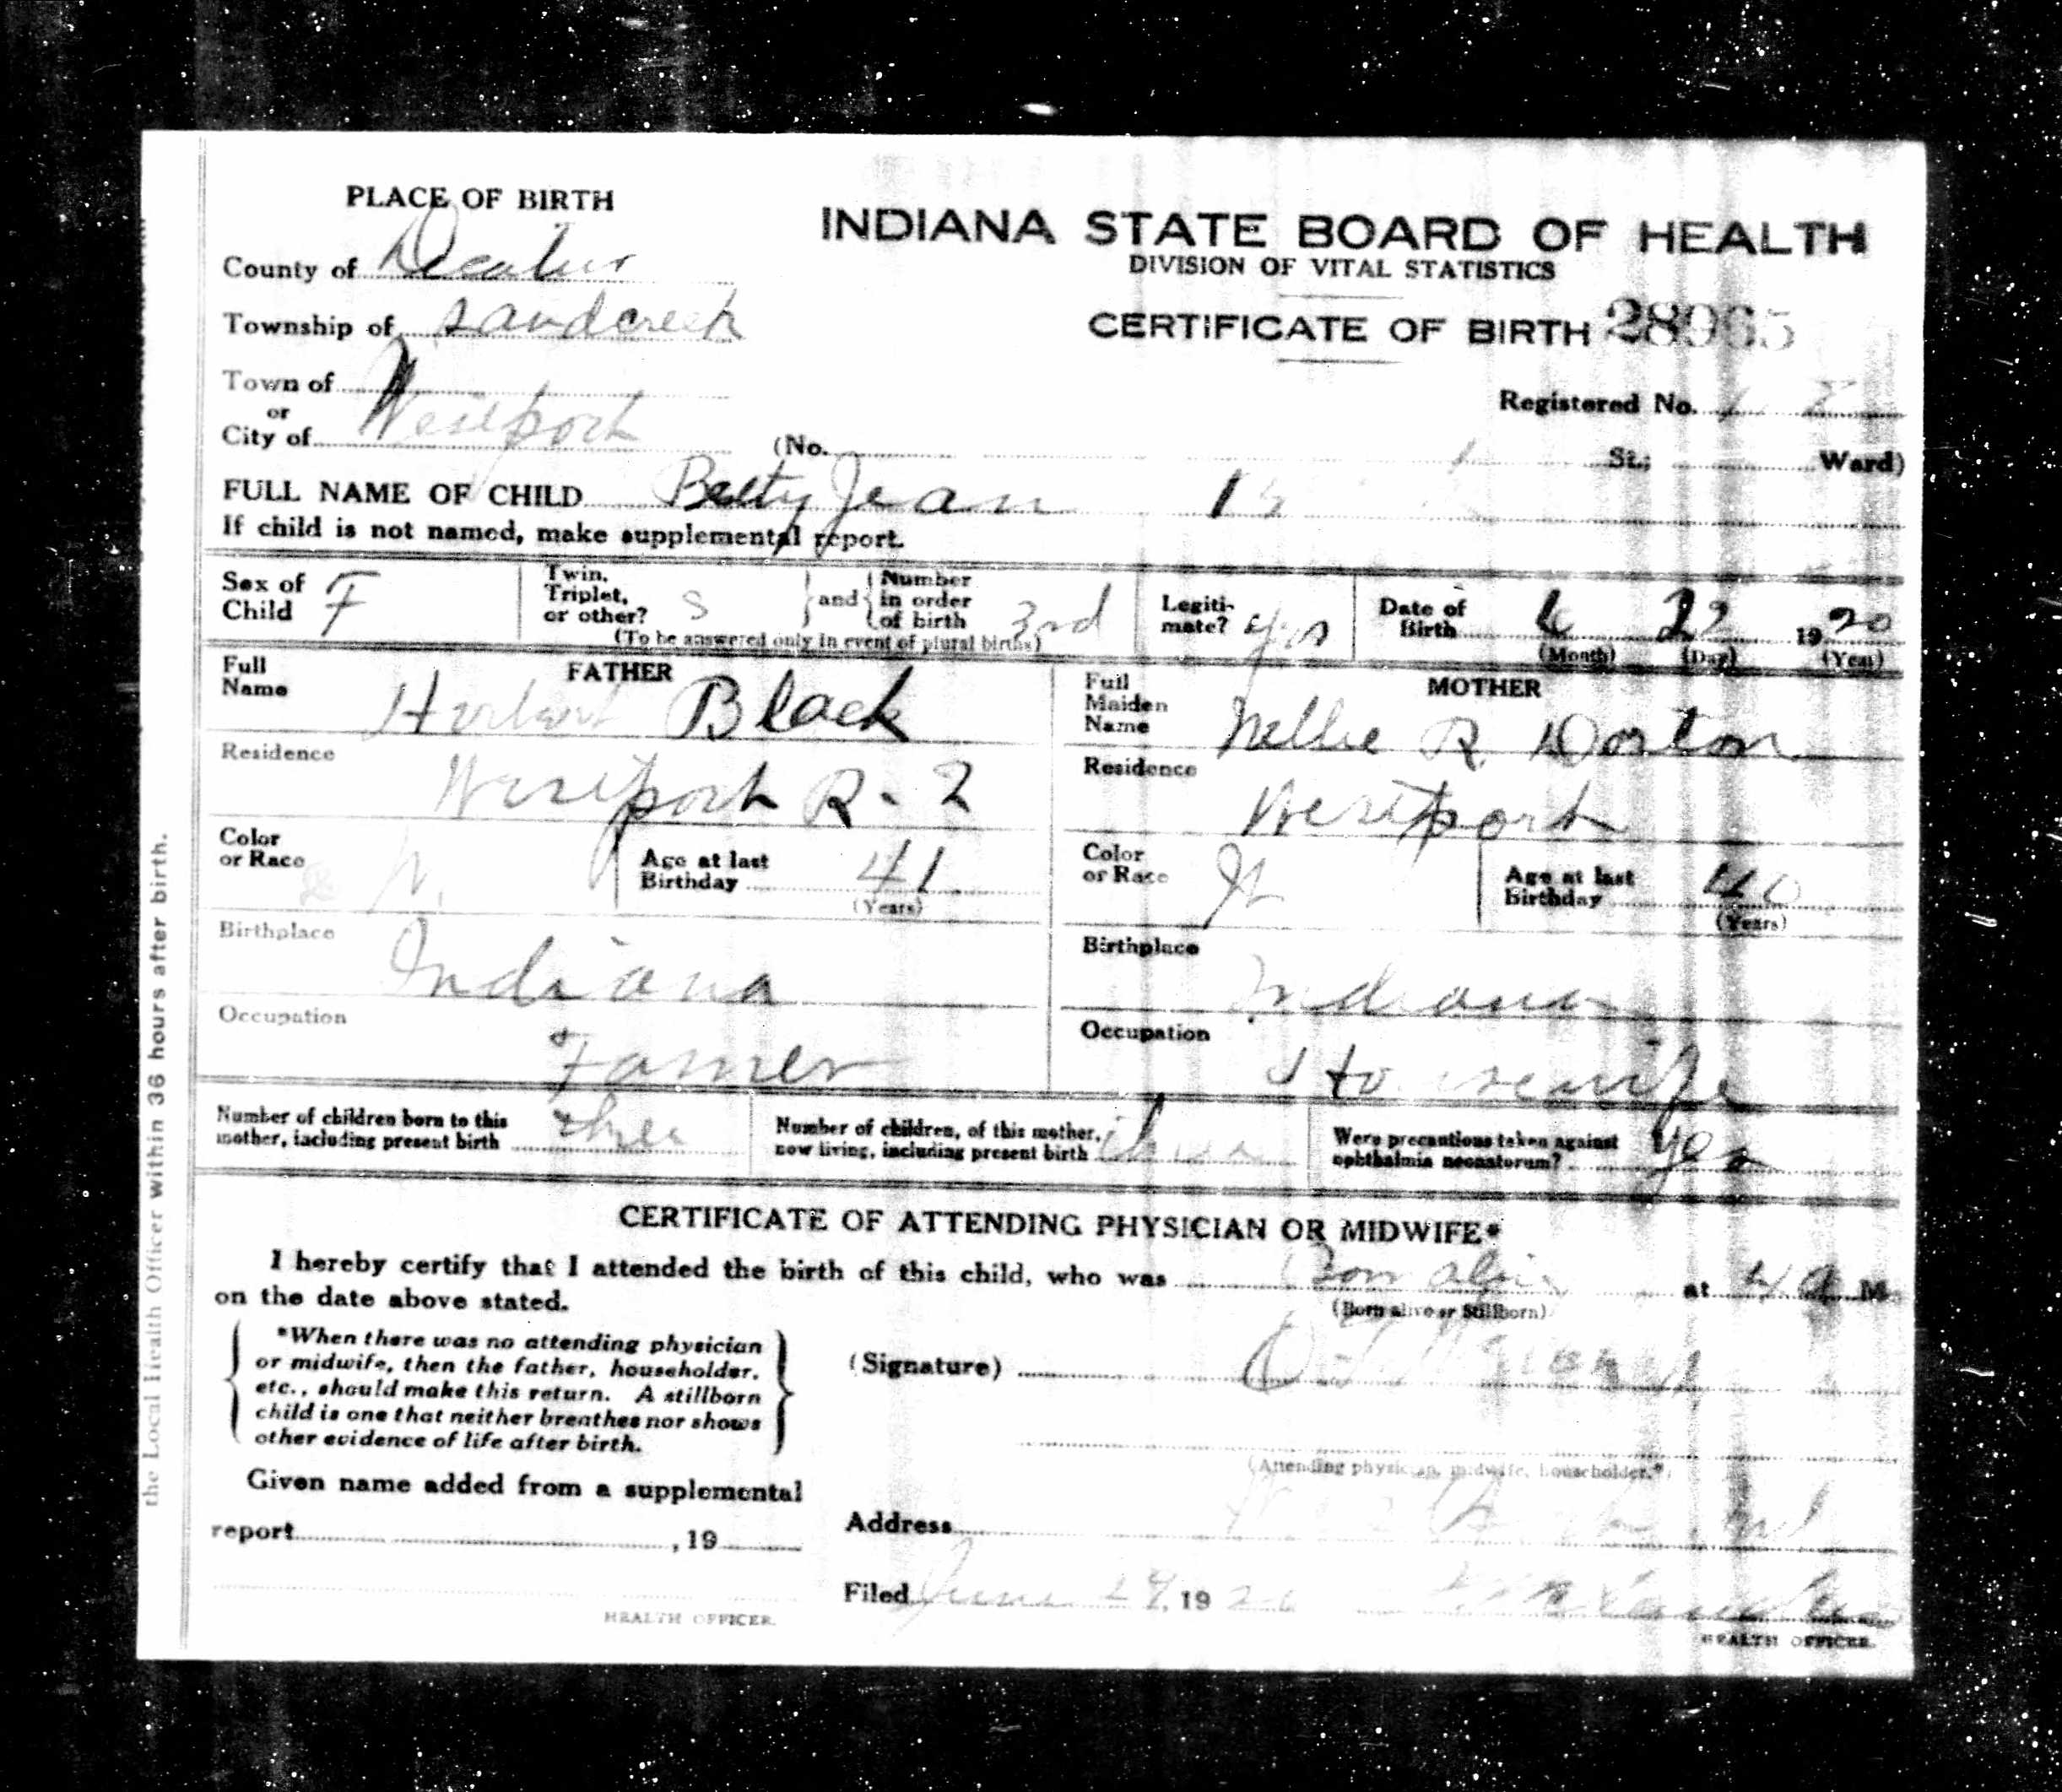 PLACE OF BIRTH
INDIANA STATE BOARD OF HEALTH
DIVISION OF VITAL STATISTICS
County of Decatur
Township of sandcreek
CERTIFICATE OF BIRTH 28965
Town of
or
City of Westport
Registered No.
(No. St.; Ward)
FULL NAME OF CHILD Betty Jean
If child is not named, make supplemental report.
Sex of Child F
Twin, Triplet, or other? S and Number in order of birth 3rd
(To be answered only in event of plural births)
Legitimate? yes
Date of Birth 6 22 1920
(Month) (Day) (Year)
FATHER
Full Name Herbert Black
MOTHER
Full Maiden Name Nellie R Dorton
Residence Westport R-2
Residence Westport
Color or Race W.
Age at last Birthday 41
(Years)
Color or Race W
Age at last Birthday 40
(Years)
Birthplace Indiana
Birthplace Indiana
Occupation Famer
Occupation Housewife
Number of children born to this mother, including present birth three
Number of children, of this mother, now living, including present birth three
Were precautions taken against ophthalmia neonatorum? yes
CERTIFICATE OF ATTENDING PHYSICIAN OR MIDWIFE*
I hereby certify that I attended the birth of this child, who was Born alive at 4 a M.
(Born alive or Stillborn)
on the date above stated.
*When there was no attending physician
or midwife, then the father, householder,
etc., should make this return. A stillborn
child is one that neither breathes nor shows
other evidence of life after birth.
(Signature)
(Attending physician, midwife, householder.*)
Given name added from a supplemental
report , 19
Address
Filed June 24, 1920
HEALTH OFFICER.
HEALTH OFFICER.
the Local Health Officer within 36 hours after birth.